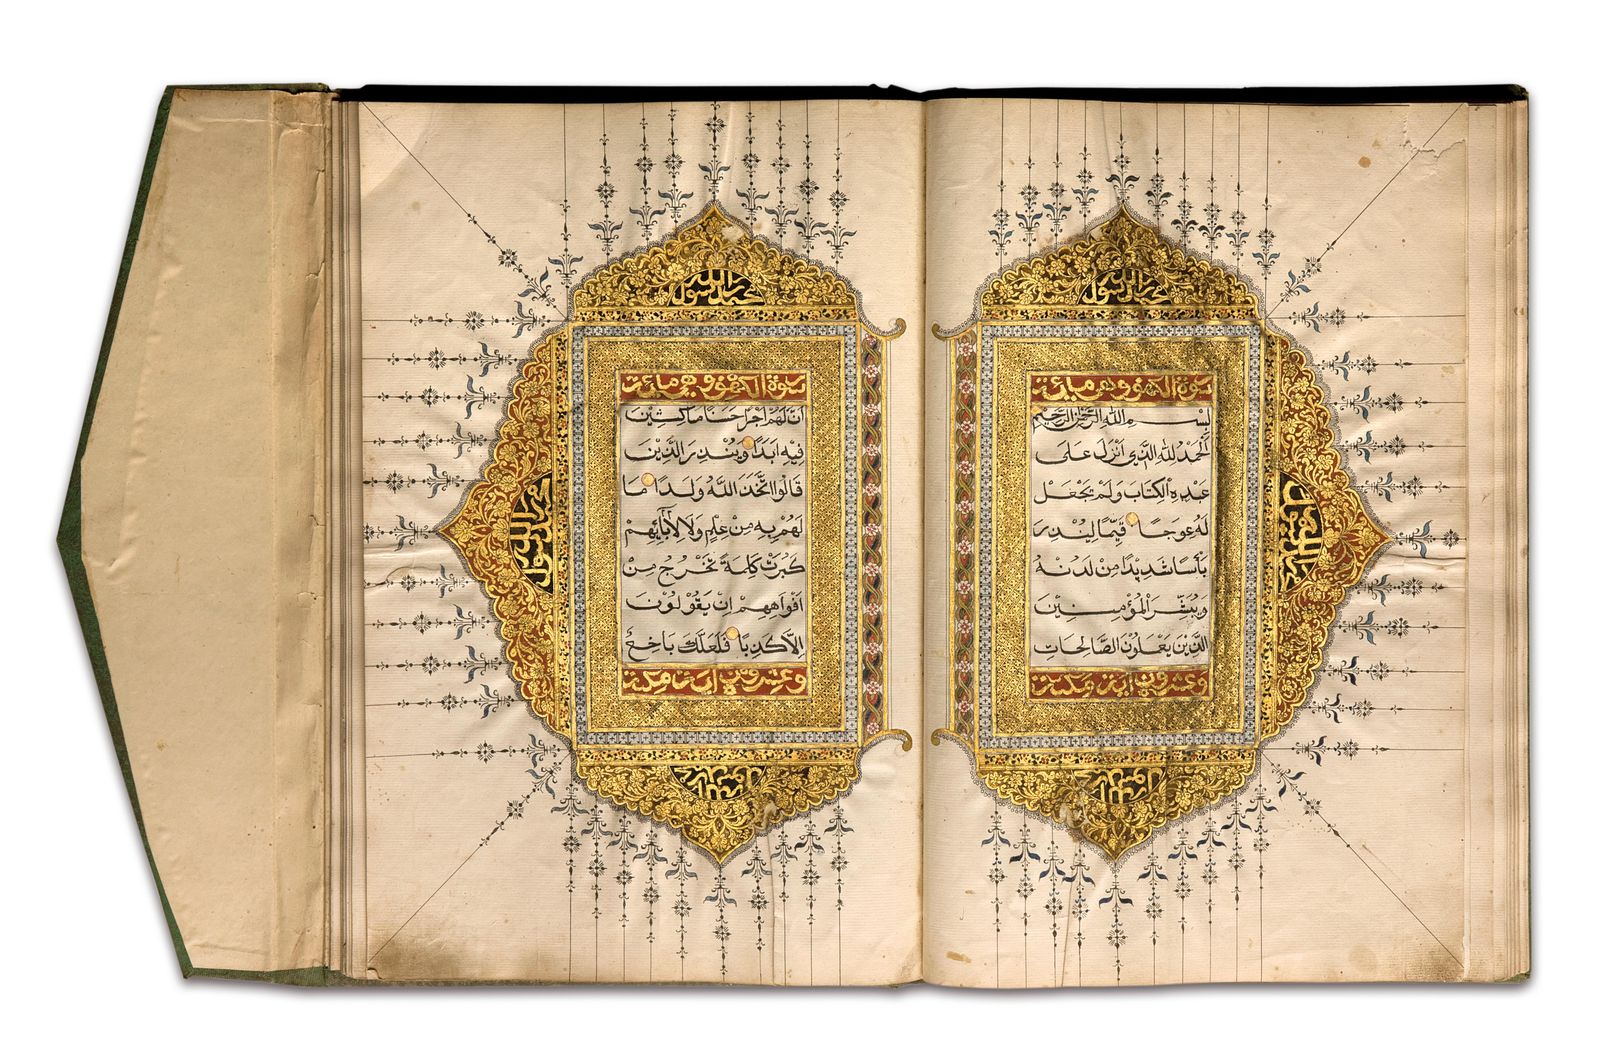 محمد رسول الله
سورة الكهف وهي مائة
بِسْمِ اللهِ الرَّحْمٰنِ الرَّحِيْمِ
اَلْحَمْدُ لِلّٰهِ الَّذِيْ اَنْزَلَ عَلَى
عَبْدِهِ الْكِتَابَ وَلَمْ يَجْعَلْ
لَهُ عِوَجًا قَيِّمًا لِيُنْذِرَ
بَأْسًا شَدِيْدًا مِنْ لَدُنْهُ
وَيُبَشِّرَ الْمُؤْمِنِيْنَ
الَّذِيْنَ يَعْمَلُوْنَ الصَّالِحَاتِ
وعشرون اية مكية
محمد رسول الله
سورة الكهف وهي مائة
اَنَّ لَهُمْ اَجْرًا حَسَنًا مَاكِثِيْنَ
فِيْهِ اَبَدًا وَيُنْذِرَ الَّذِيْنَ
قَالُوا اتَّخَذَ اللهُ وَلَدًا مَا
لَهُمْ بِهِ مِنْ عِلْمٍ وَلَا لِاٰبَائِهِمْ
كَبُرَتْ كَلِمَةً تَخْرُجُ مِنْ
اَفْوَاهِهِمْ اِنْ يَقُوْلُوْنَ
اِلَّا كَذِبًا فَلَعَلَّكَ بَاخِعٌ
وعشرون اية مكية
محمد رسول الله